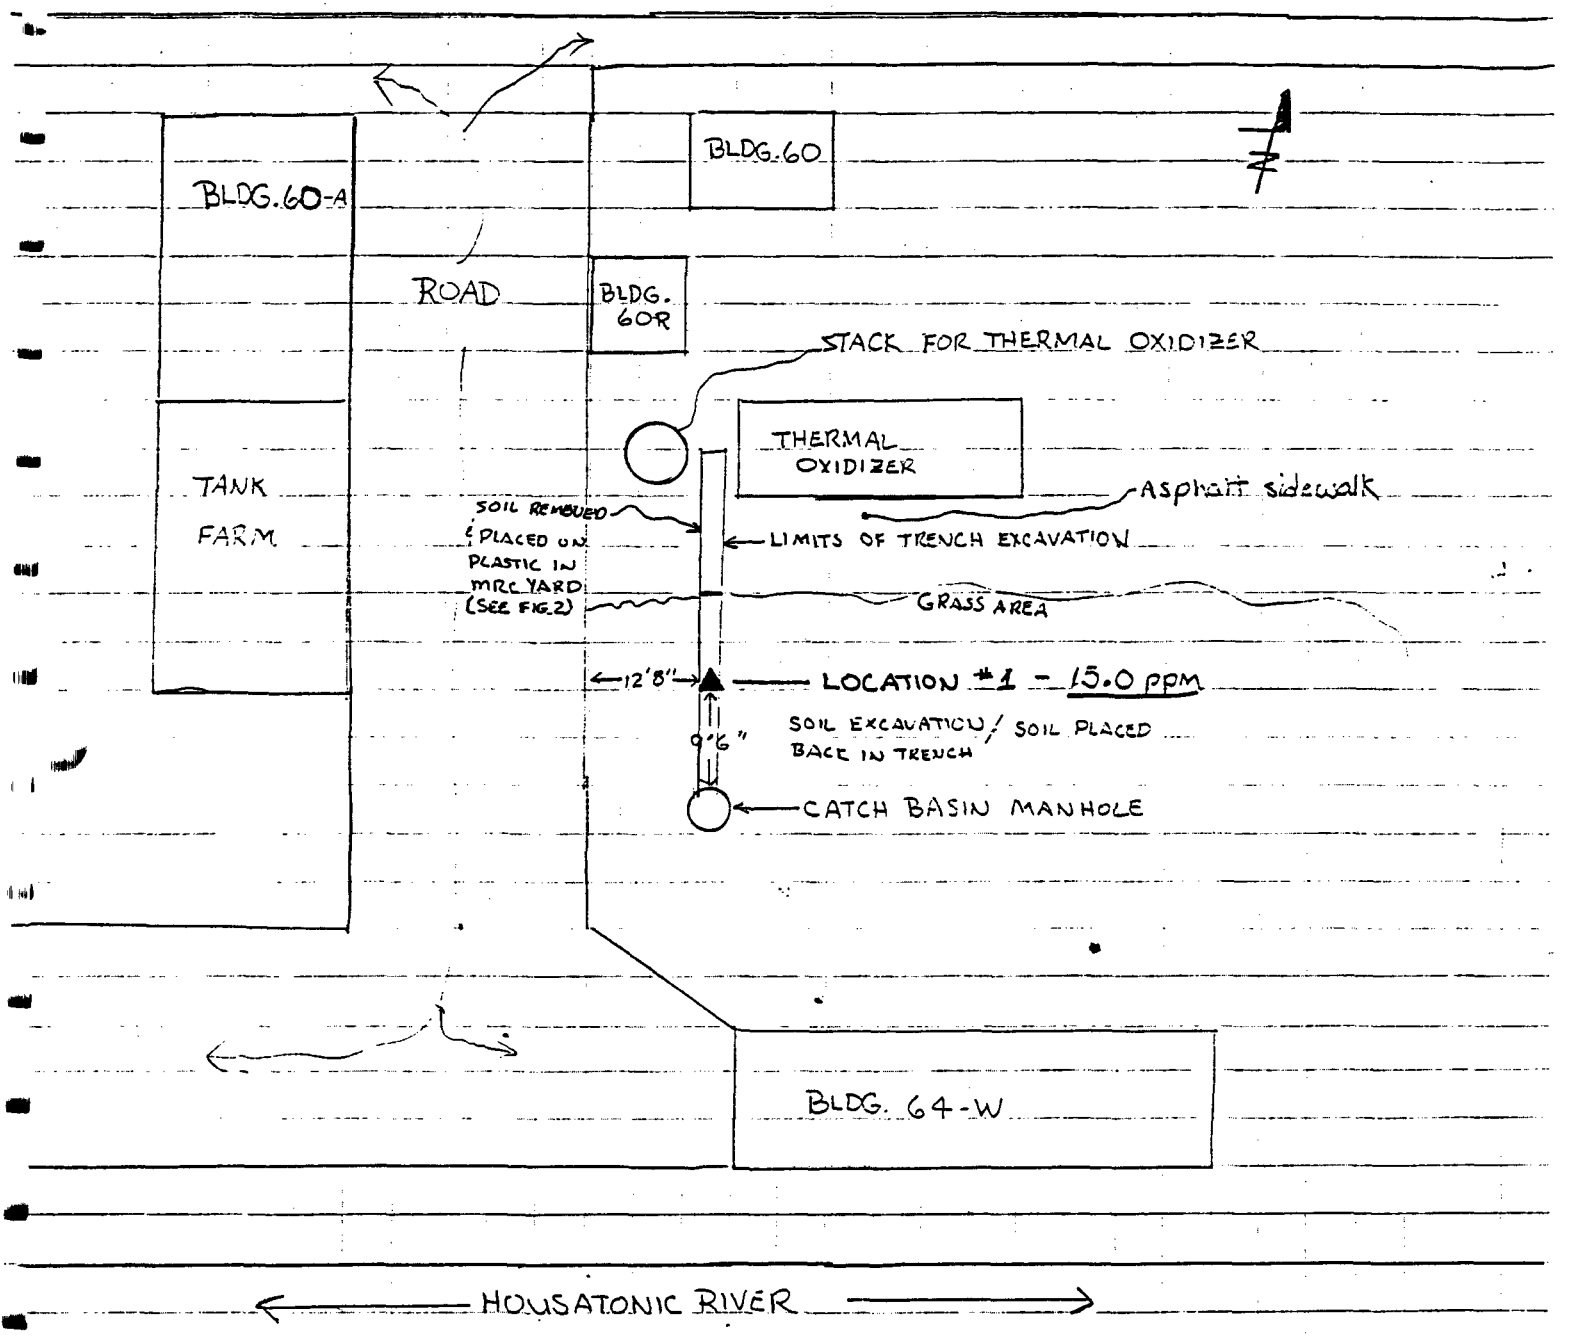 BLDG. 60
N
BLDG. 60-A
ROAD
BLDG.
60R
STACK FOR THERMAL OXIDIZER
THERMAL
OXIDIZER
TANK
FARM
Asphalt sidewalk
SOIL REMOVED
& PLACED ON
PLASTIC IN
MRC YARD
(SEE FIG.2)
LIMITS OF TRENCH EXCAVATION
GRASS AREA
12'8"
LOCATION #1 - 15.0 ppm
9'6"
SOIL EXCAVATION / SOIL PLACED
BACK IN TRENCH
CATCH BASIN MANHOLE
BLDG. 64-W
HOUSATONIC RIVER